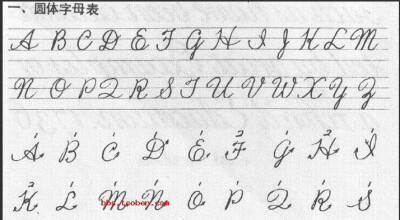 一、圆体字母表
A B C D E F G H I J K L M
N O P Q R S T U V W X Y Z
A B C D E F G H I
K L M N O P Q R S
bbs.tooben.com